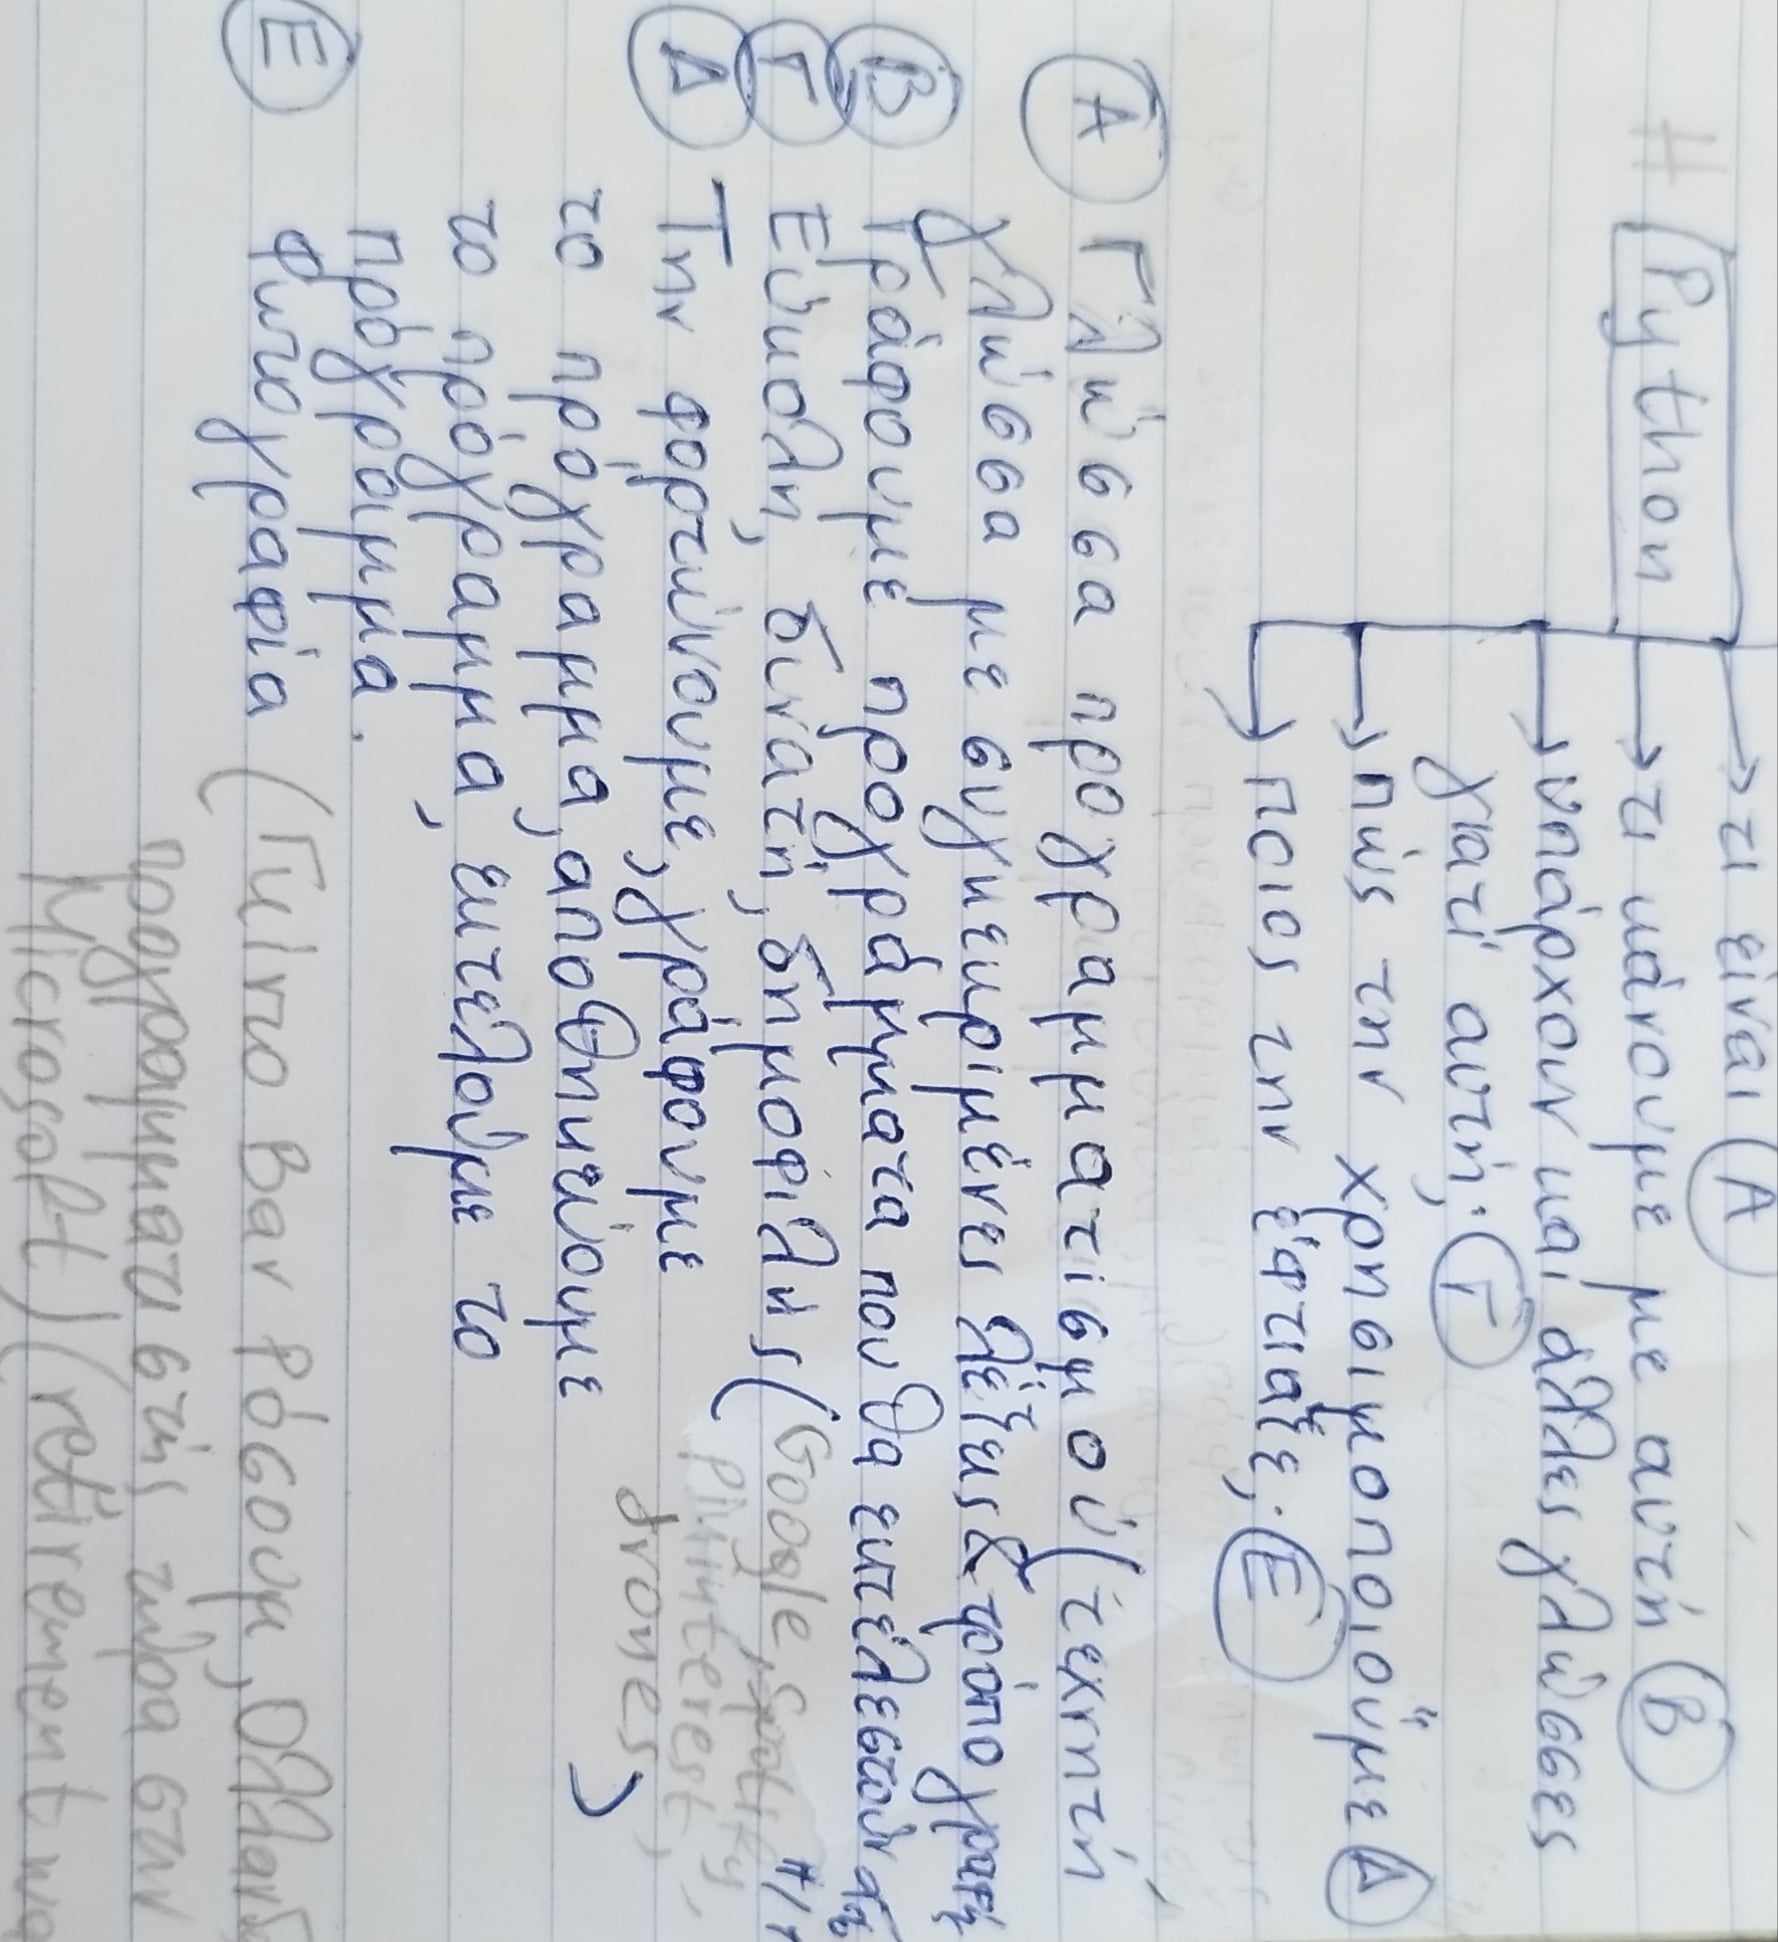 # Python
→ τι είναι Α
→ τι κάνουμε με αυτή Β
→ υπάρχουν και άλλες γλώσσες
γιατί αυτή; Γ
→ πώς την χρησιμοποιούμε Δ
→ ποιος την έφτιαξε; Ε
Α Γλώσσα προγραμματισμού (τεχνητή
γλώσσα με συγκεκριμένες λέξεις & τρόπο γραφή
Β Γράφουμε προγράμματα που θα εκτελεστούν
Γ Εύκολη, δυνατή, δημοφιλής (Google, Spotify,
Pinterest,
drones)
Δ Την φορτώνουμε, γράφουμε
το πρόγραμμα, αποθηκεύουμε
το πρόγραμμα, εκτελούμε το
πρόγραμμα.
Ε φωτογραφία (Γκίντο Βαν Ρόσουμ, Ολλανδ
προγραμματιστής τώρα στην
Microsoft) (retirement